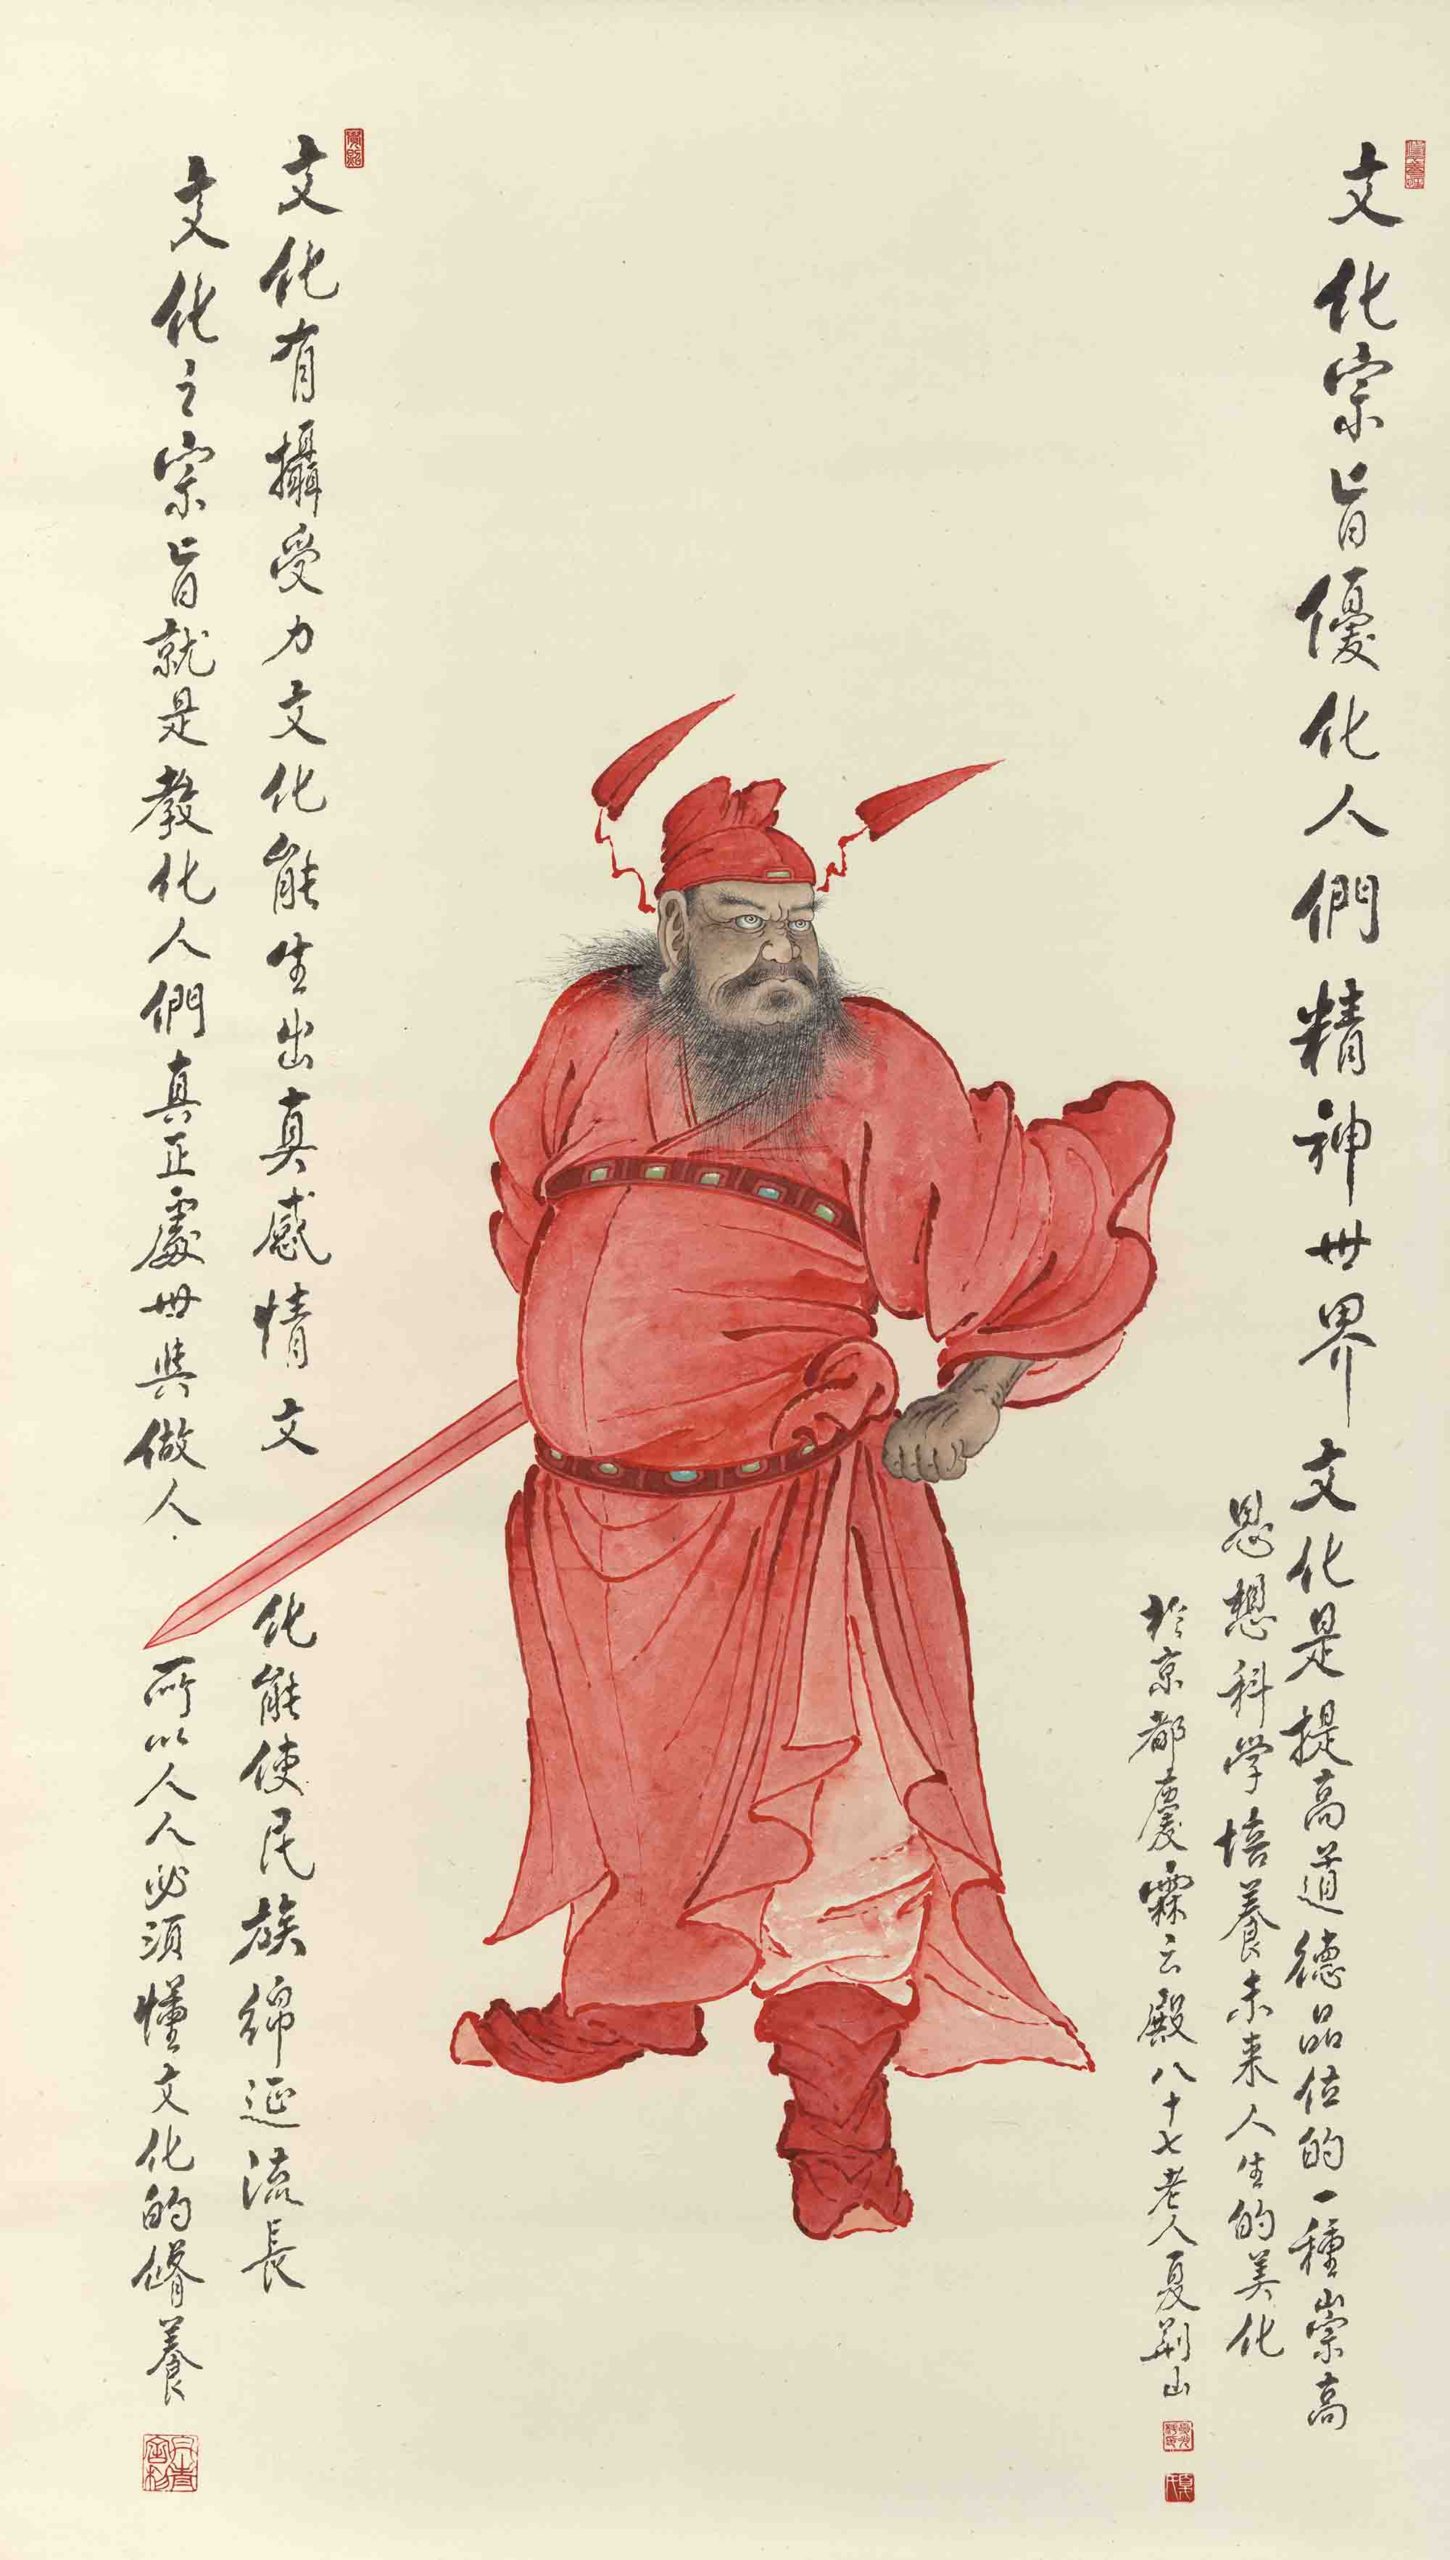 文化宗旨優化人們精神世界文化是提高道德品位的一種崇高
思想科学培養未来人生的美化
於京都慶霖云殿八十七老人夏荆山
文化有攝受力文化能生出真感情文化能使民族綿延流長
文化之宗旨就是教化人們真正處世與做人所以人人必須懂文化的脩養